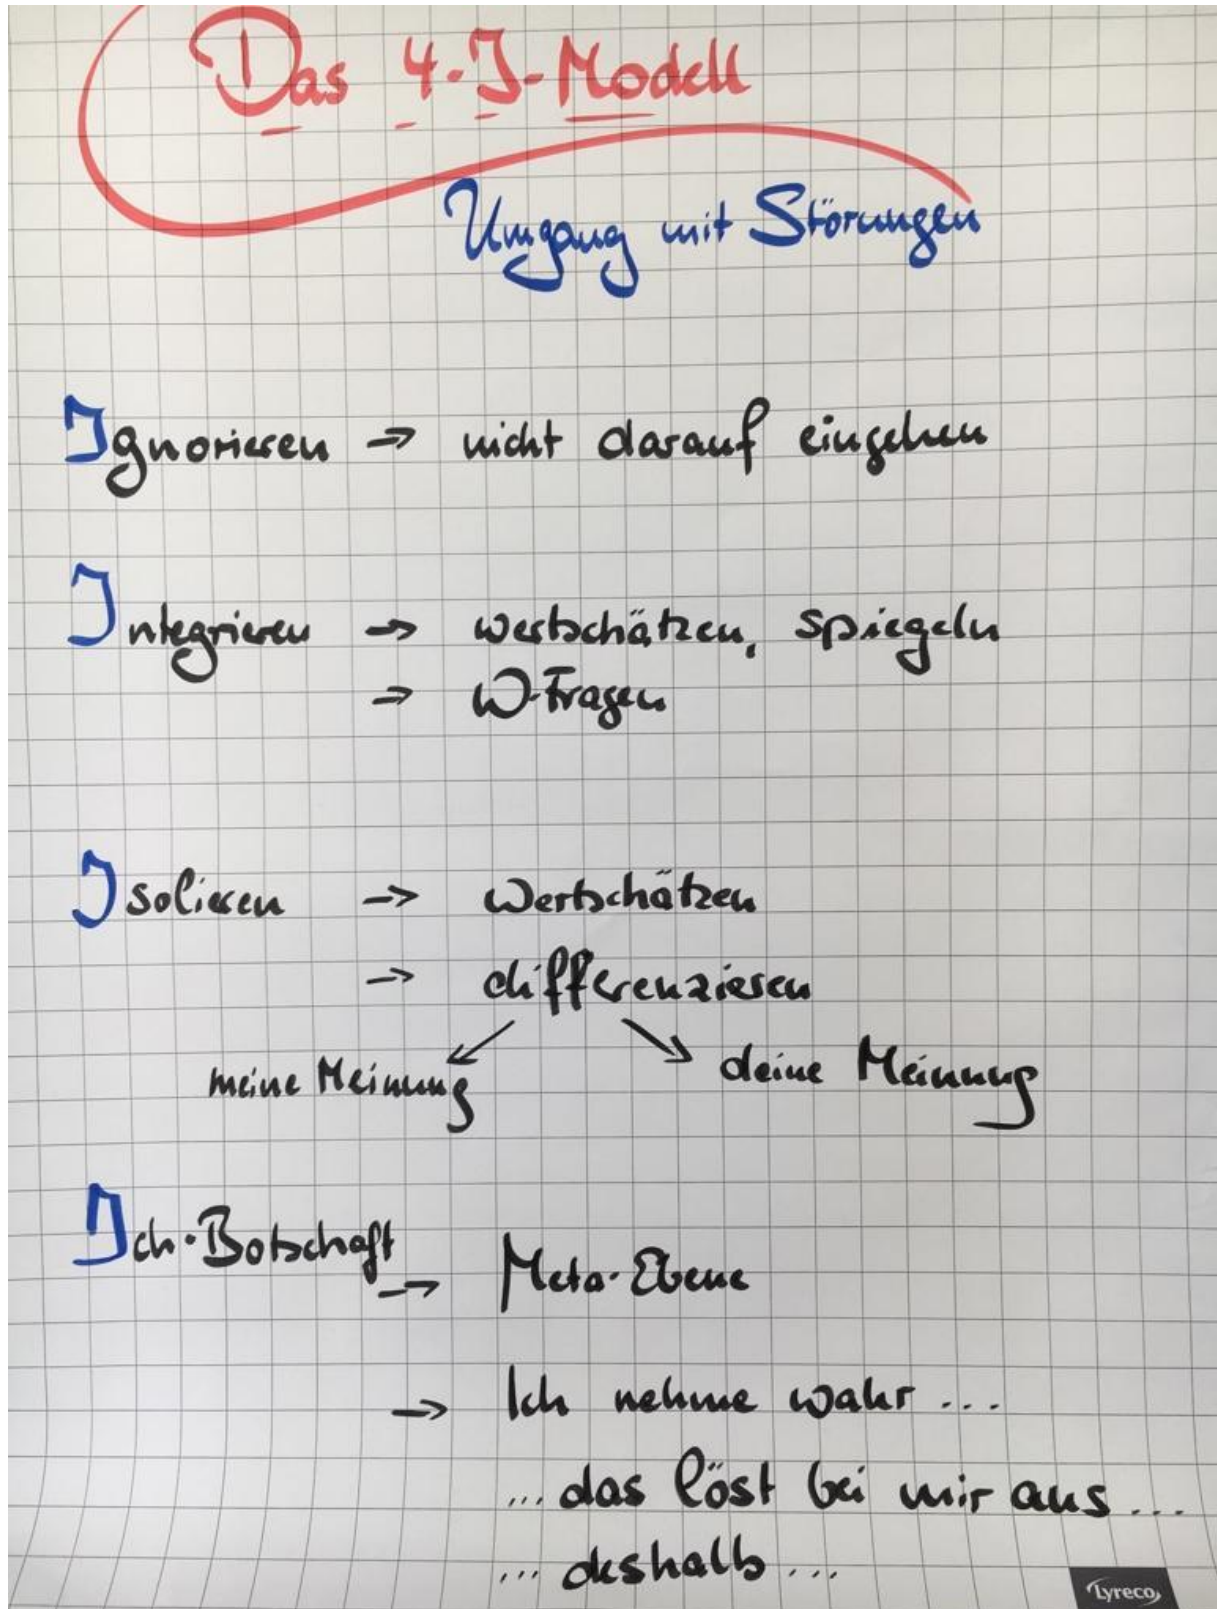 Das 4-I-Modell
Umgang mit Störungen
Ignorieren → nicht darauf eingehen
Integrieren → wertschätzen, spiegeln
→ W-Fragen
Isolieren → Wertschätzen
→ differenzieren
meine Meinung deine Meinung
Ich-Botschaft
→ Meta-Ebene
→ Ich nehme wahr ...
... das löst bei mir aus ...
... deshalb ...
Lyreco